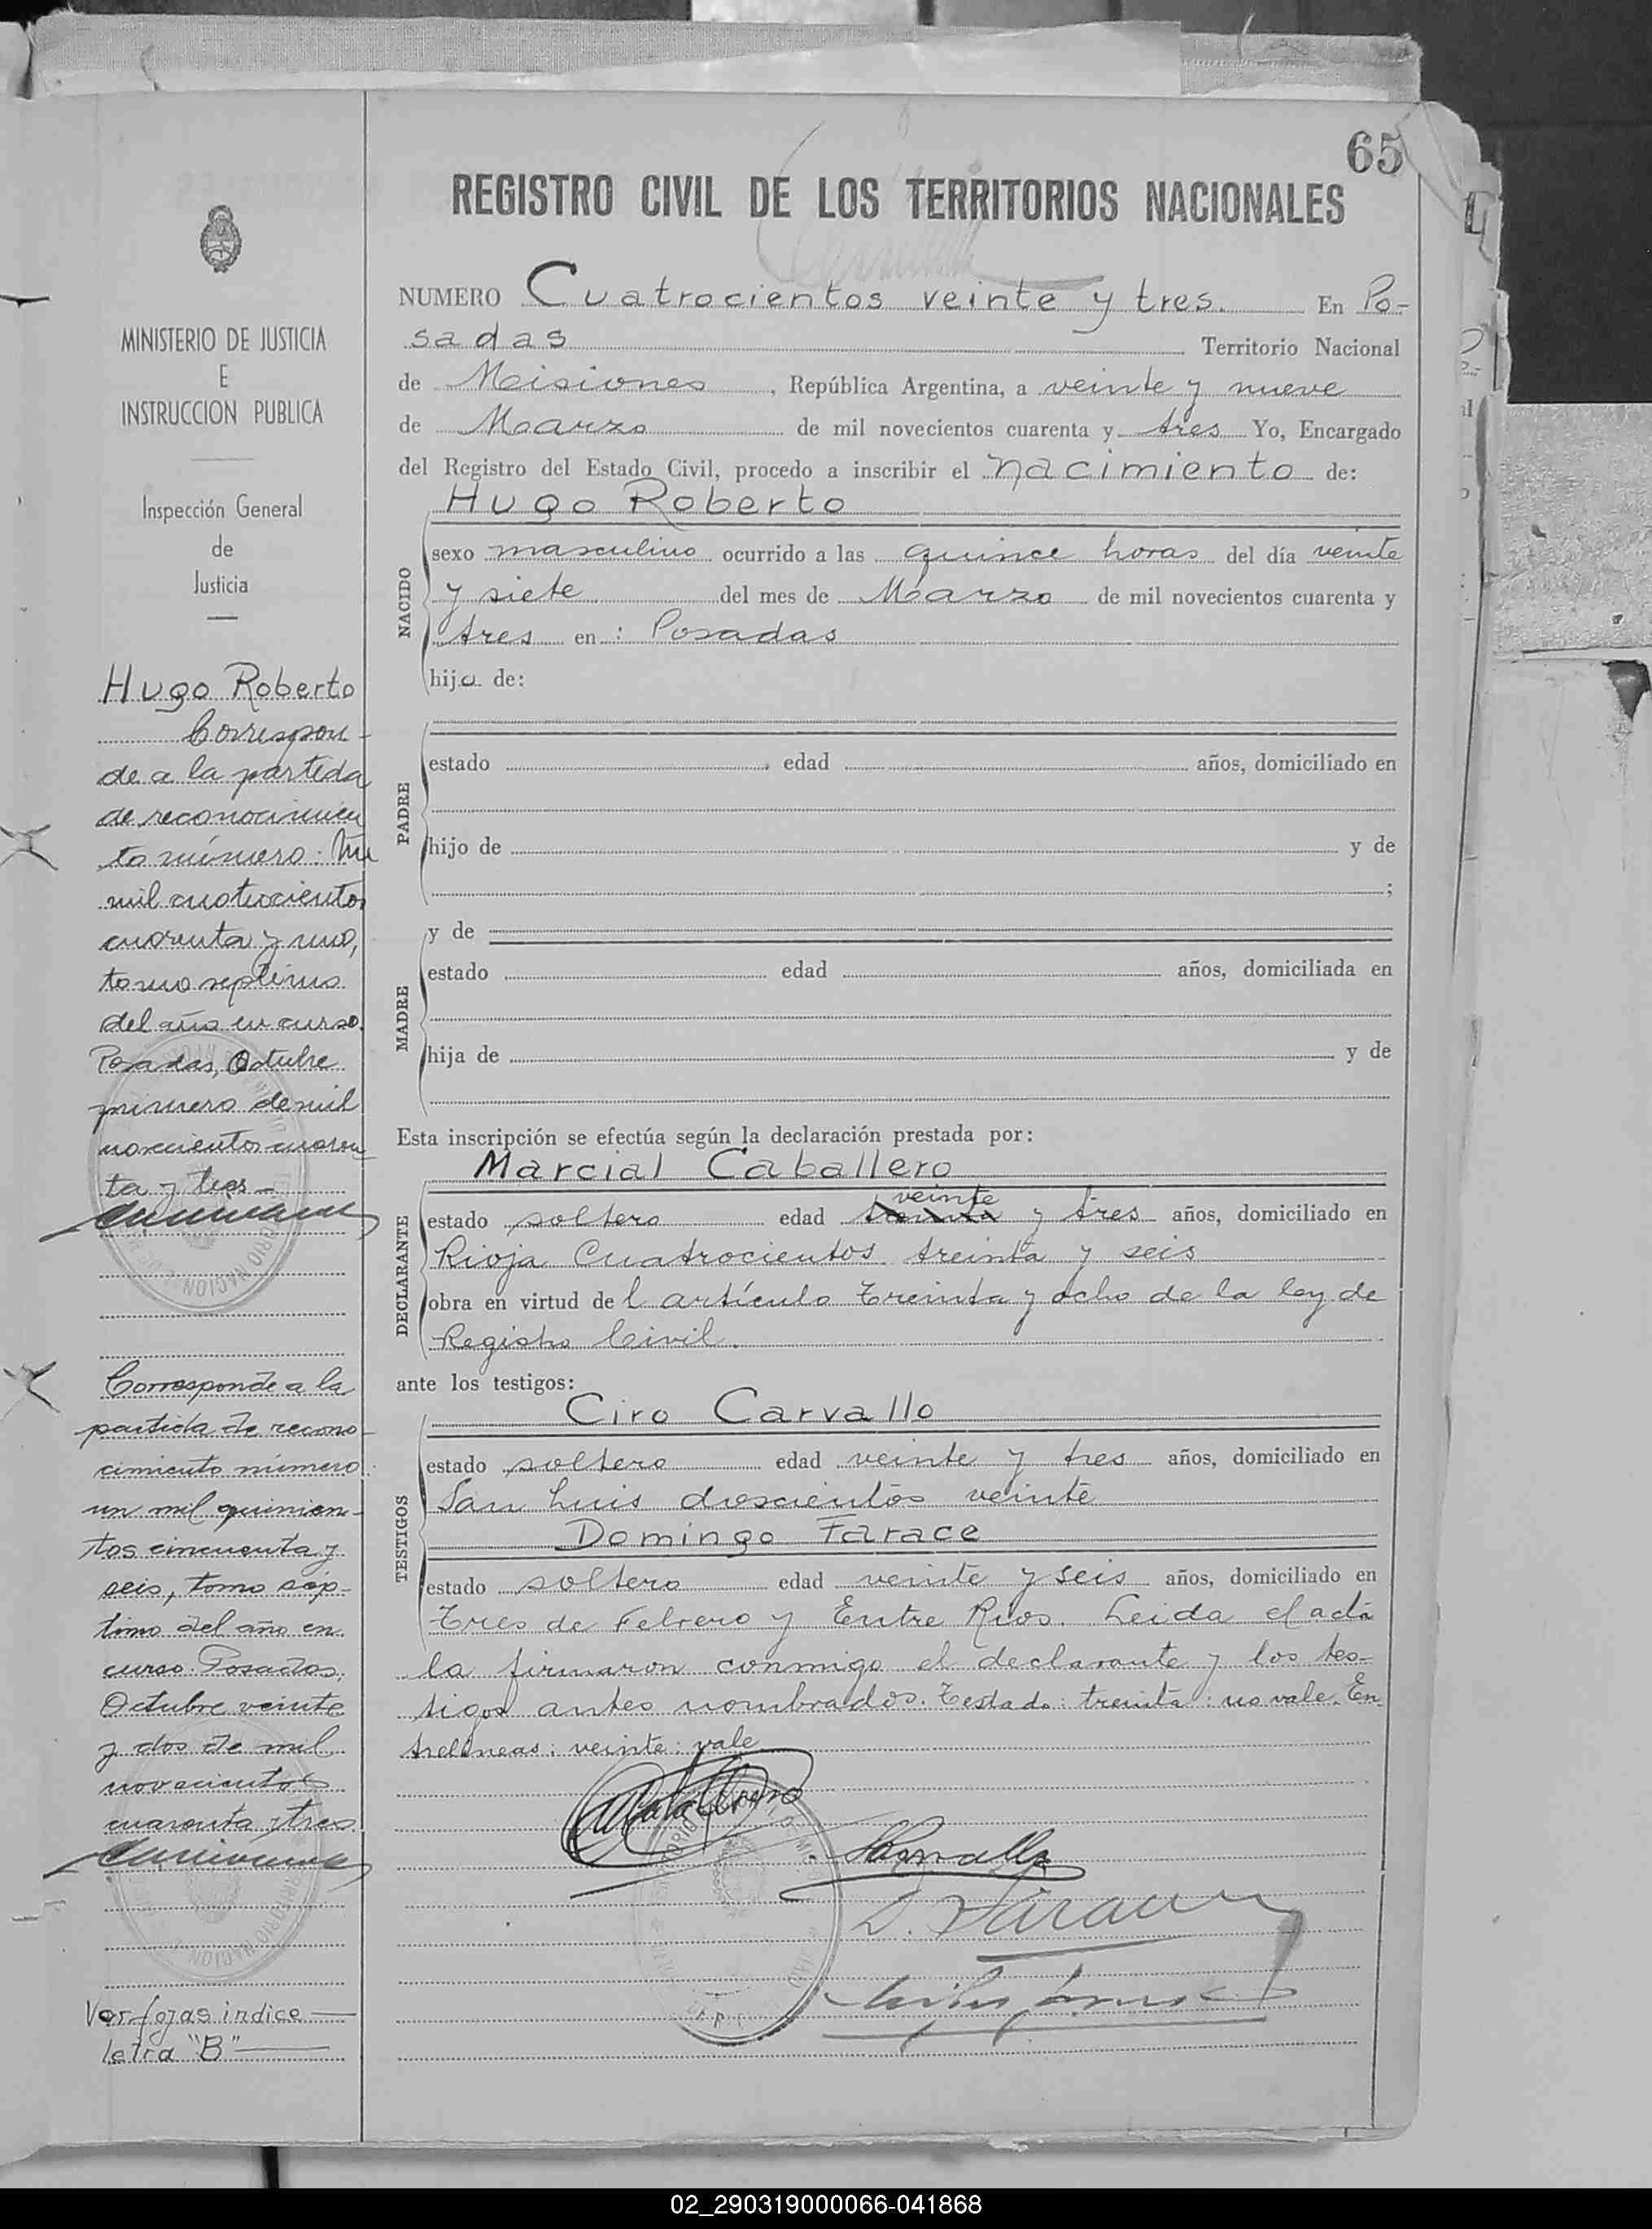 65
REGISTRO CIVIL DE LOS TERRITORIOS NACIONALES
NUMERO Cuatrocientos veinte y tres. En Po-
sadas Territorio Nacional
de Misiones, República Argentina, a veinte y nueve
de Marzo de mil novecientos cuarenta y tres Yo, Encargado
del Registro del Estado Civil, procedo a inscribir el nacimiento de:
Hugo Roberto
NACIDO
sexo masculino ocurrido a las quince horas del día veinte
y siete del mes de Marzo de mil novecientos cuarenta y
tres en: Posadas
hijo de:
PADRE
estado , edad años, domiciliado en
hijo de y de
;
MADRE
y de
estado edad años, domiciliada en
hija de y de
Esta inscripción se efectúa según la declaración prestada por:
Marcial Caballero
DECLARANTE
veinte
estado soltero edad treinta y tres años, domiciliado en
Rioja Cuatrocientos treinta y seis
obra en virtud del artículo treinta y ocho de la ley de
Registro Civil.
ante los testigos:
TESTIGOS
Ciro Carvallo
estado soltero edad veinte y tres años, domiciliado en
San Luis doscientos veinte
Domingo Farace
estado soltero edad veinte y seis años, domiciliado en
Tres de Febrero y Entre Rios. Leida el acta
la firmaron conmigo el declarante y los tes-
tigos antes nombrados. Testado: treinta: no vale. En-
trelineas: veinte: vale
D. Farace
MINISTERIO DE JUSTICIA
E
INSTRUCCION PUBLICA
Inspección General
de
Justicia
Hugo Roberto
Correspon-
de a la partida
de reconocimien
to número: Un
mil cuatrocientos
cuarenta y uno,
tomo septimo
del año en curso.
Posadas, Octubre
primero de mil
novecientos cuaren
ta y tres-
Corresponde a la
partida de recono-
cimiento número
un mil quinien-
tos cincuenta y
seis, tomo sép-
timo del año en
curso. Posadas,
Octubre veinte
y dos de mil
novecientos
cuarenta y tres.
Ver fojas indice
letra "B"
02_290319000066-041868